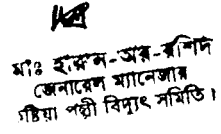 মোঃ হারুন-অর-রশিদ
জেনারেল ম্যানেজার
ষ্টিয়া পল্লী বিদ্যুৎ সমিতি।